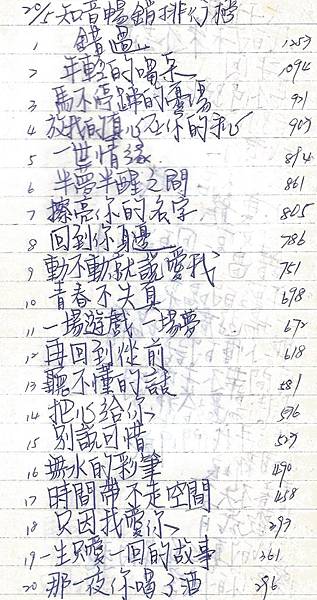 20/5 知音暢銷排行榜
1 錯過 1253
2 年輕的喝采 1094
3 馬不停蹄的憂傷 921
4 放我的真心在你的手心 903
5 一世情緣 894
6 半夢半醒之間 861
7 擦亮你的名字 805
8 回到你身邊 786
9 動不動就說愛我 751
10 青春不失真 698
11 一場遊戲一場夢 672
12 再回到從前 618
13 聽不懂的話 581
14 把心給你 576
15 別說可惜 527
16 無水的彩筆 490
17 時間帶不走空間 458
18 只因我愛你 393
19 一生只愛一回的故事 361
20 那一夜你喝了酒 296